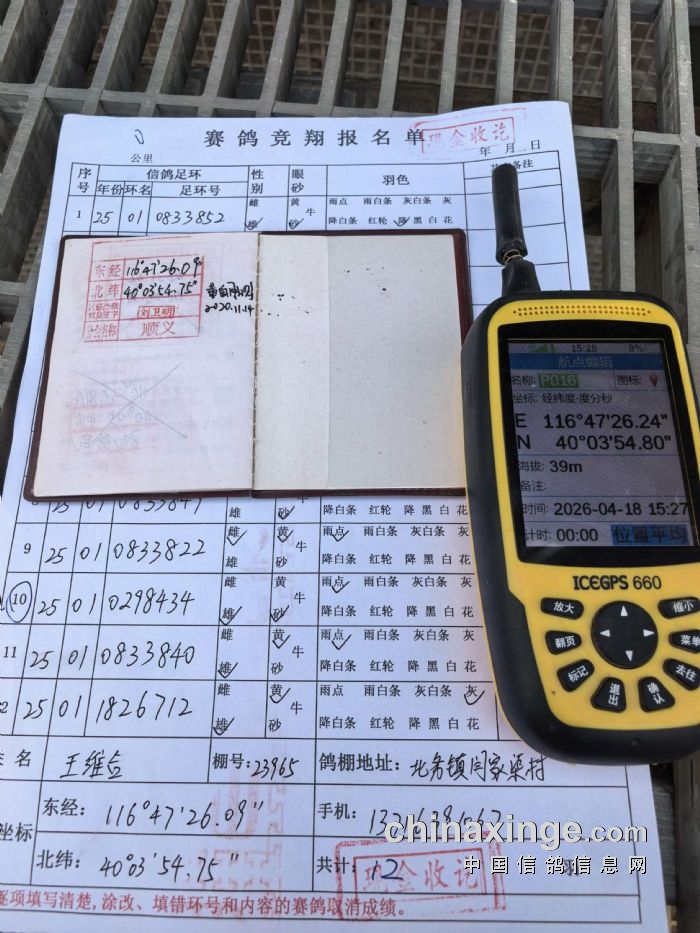 赛鸽竞翔报名单
现金收讫
公里
年 月 日
序号 信鸽足环 性别 眼砂 羽色 备注
年份 环名 足环号
1 25 01 0833852 雌 雄 黄 砂 牛 雨点 雨白条 灰白条 灰
降白条 红轮 降 黑 白 花
东经 116°47'26.09"
北纬 40°03'54.75"
刘卫明
顺义
2020.11.14
25 01 0833841 雄 砂 降白条 红轮 降 黑 白 花
9 25 01 0833822 雌 雄 黄 砂 牛 雨点 雨白条 灰白条 灰
降白条 红轮 降 黑 白 花
10 25 01 0298434 雌 雄 黄 砂 牛 雨点 雨白条 灰白条 灰
降白条 红轮 降 黑 白 花
11 25 01 0833840 雌 雄 黄 砂 牛 雨点 雨白条 灰白条 灰
降白条 红轮 降 黑 白 花
2 25 01 1826712 雌 雄 黄 砂 牛 雨点 雨白条 灰白条 灰
降白条 红轮 降 黑 白 花
名 棚号:23965 鸽棚地址:北务镇闫家渠村
坐标 东经: 116°47'26.09" 手机:
北纬: 40°03'54.75" 共计: 12 羽
现金收讫
逐项填写清楚,涂改、填错环号和内容的赛鸽取消成绩。
15:28 8%
航点编辑
名称: P016 图标:
坐标: 经纬度-度分秒
E 116°47'26.24"
N 40°03'54.80"
海拔: 39m
备注:
时间: 2026-04-18 15:27
计时: 00:00 位置平均
ICEGPS 660
放大 缩小
翻页 菜单
标记 去往
退出 确认
chinaxinge.com
中国信鸽信息网